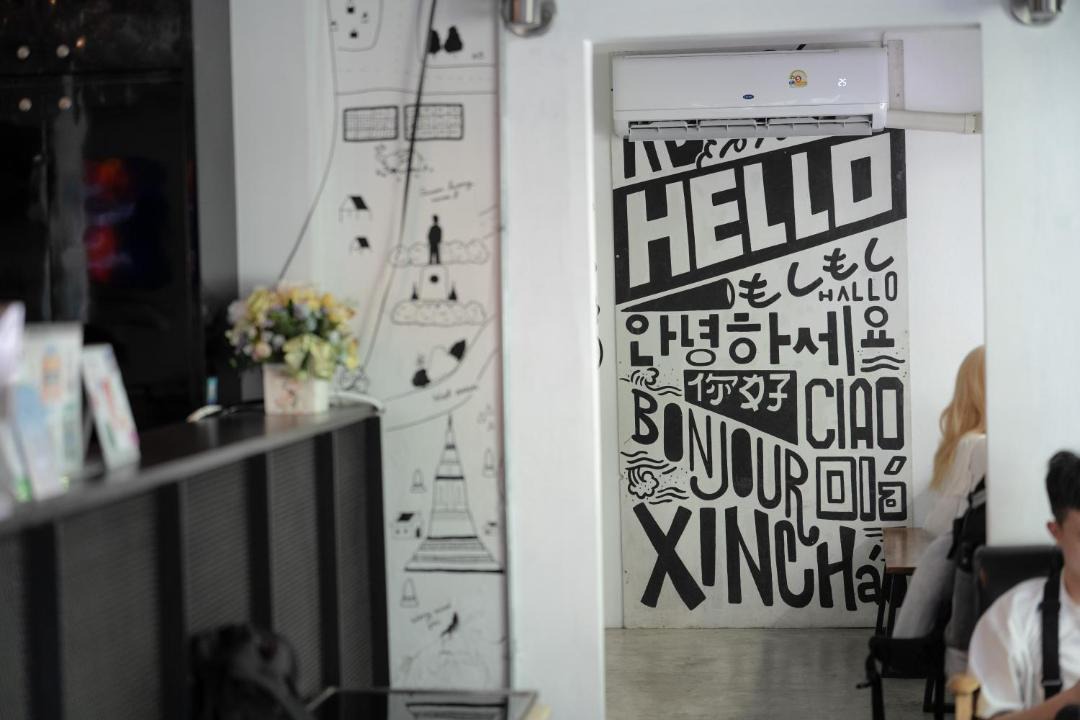 25
HELLO
もしもし
HALLO
안녕하세요
你好
CIAO
BONJOUR
Olá
XINCHào